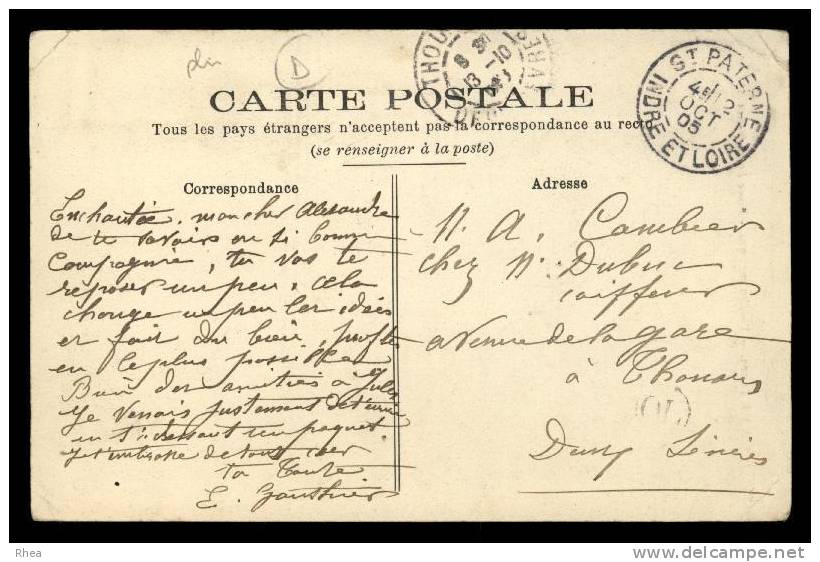 plm
D
THOU
8
13 -10
DEUX
SEVRES
ST PATERNE
4E/12
OCT
05
INDRE ET LOIRE
CARTE POSTALE
Tous les pays étrangers n'acceptent pas la correspondance au recto
(se renseigner à la poste)
Correspondance
Enchantée, mon cher Alexandre
de te savoir en si bonne
Compagnie, tu vas te
reposer un peu, cela
change un peu les idées
et fait du bien, profite
en le plus possible
Bien des amitiés à Jules
Je venais justement de t'écrire
en t'adressant un paquet
Je t'embrasse de tout cœur
ta Tante
E. Gauthier
Adresse
M. A. Cambier
chez M. Dubuc
coiffeur
avenue de la gare
à Thouars
(OL)
Deux Sèvres
Rhea
www.delcampe.net